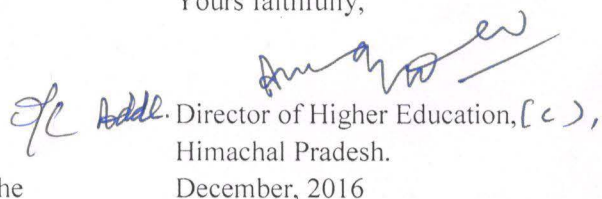 Yours faithfully,
O/C Addl. Director of Higher Education,(C),
Himachal Pradesh.
he December, 2016